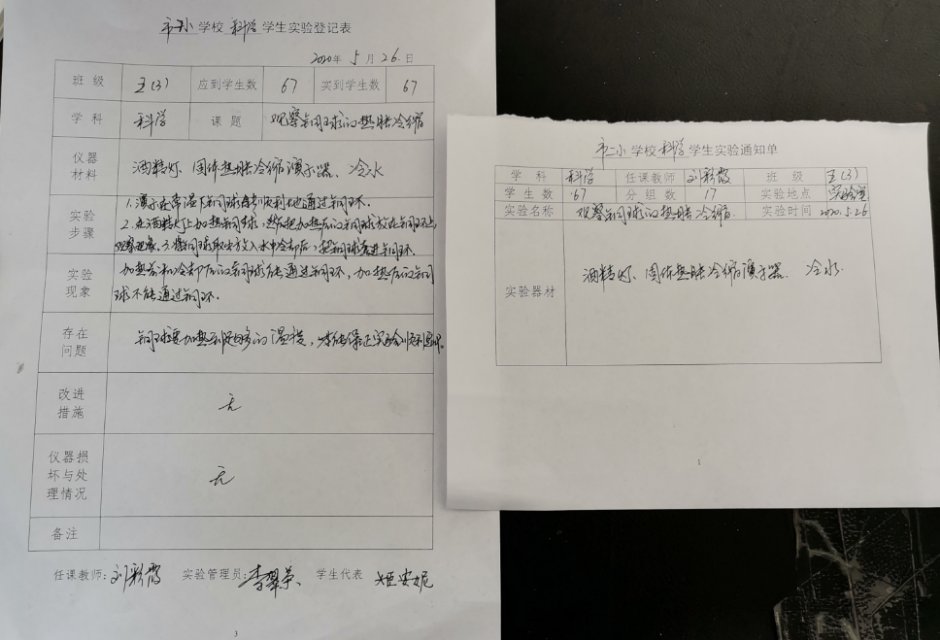 市二小学校科学学生实验登记表
2020年5月26日
班级 五(3) 应到学生数 67 实到学生数 67
学科 科学 课题 观察铜球的热胀冷缩
仪器材料 酒精灯、固体热胀冷缩演示器、冷水
实验步骤 1.演示在常温下铜球能顺利地通过铜环.
2.在酒精灯上加热铜球,然后把加热后的铜球放在铜环上,
观察现象.3.将铜球取下放入水中冷却后,铜球通进铜环.
实验现象 加热前和冷却后的铜球能通过铜环,加热后的铜
球不能通过铜环.
存在问题 铜球要加热到足够的温度,才能保证实验顺利
改进措施 无
仪器损坏与处理情况 无
备注
任课教师:刘彩霞 实验管理员:李翠英 学生代表 姬安妮
3
市二小学校科学学生实验通知单
学科 科学 任课教师 刘彩霞 班级 五(3)
学生数 67 分组数 17 实验地点 实验室
实验名称 观察铜球的热胀冷缩 实验时间 2020.5.26
实验器材 酒精灯、固体热胀冷缩演示器、冷水.
1